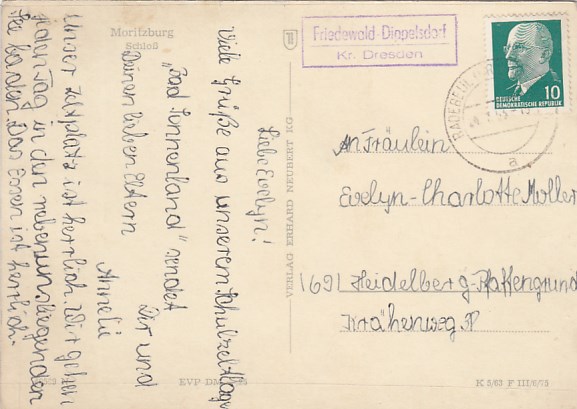 Moritzburg
Schloß
Liebe Evelyn!
Viele Grüße aus unserem Schulzeltlager
"Bad Sonnenland" sendet
Dir und
Deinen lieben Eltern
Annelie
Unser Zeltplatz ist herrlich. Wir gehen
jeden Tag in den neben uns liegenden
See baden. Das Essen ist herrlich.
EVP DM
VERLAG ERHARD NEUBERT KG
Friedewald-Dippelsdorf
Kr. Dresden
10
DEUTSCHE
DEMOKRATISCHE REPUBLIK
RADEBEUL
a
An Fräulein
Evelyn-Charlotte Moller
1691 Heidelberg-Pfaffengrund
Krähenweg
K 3/63 F III/6/75